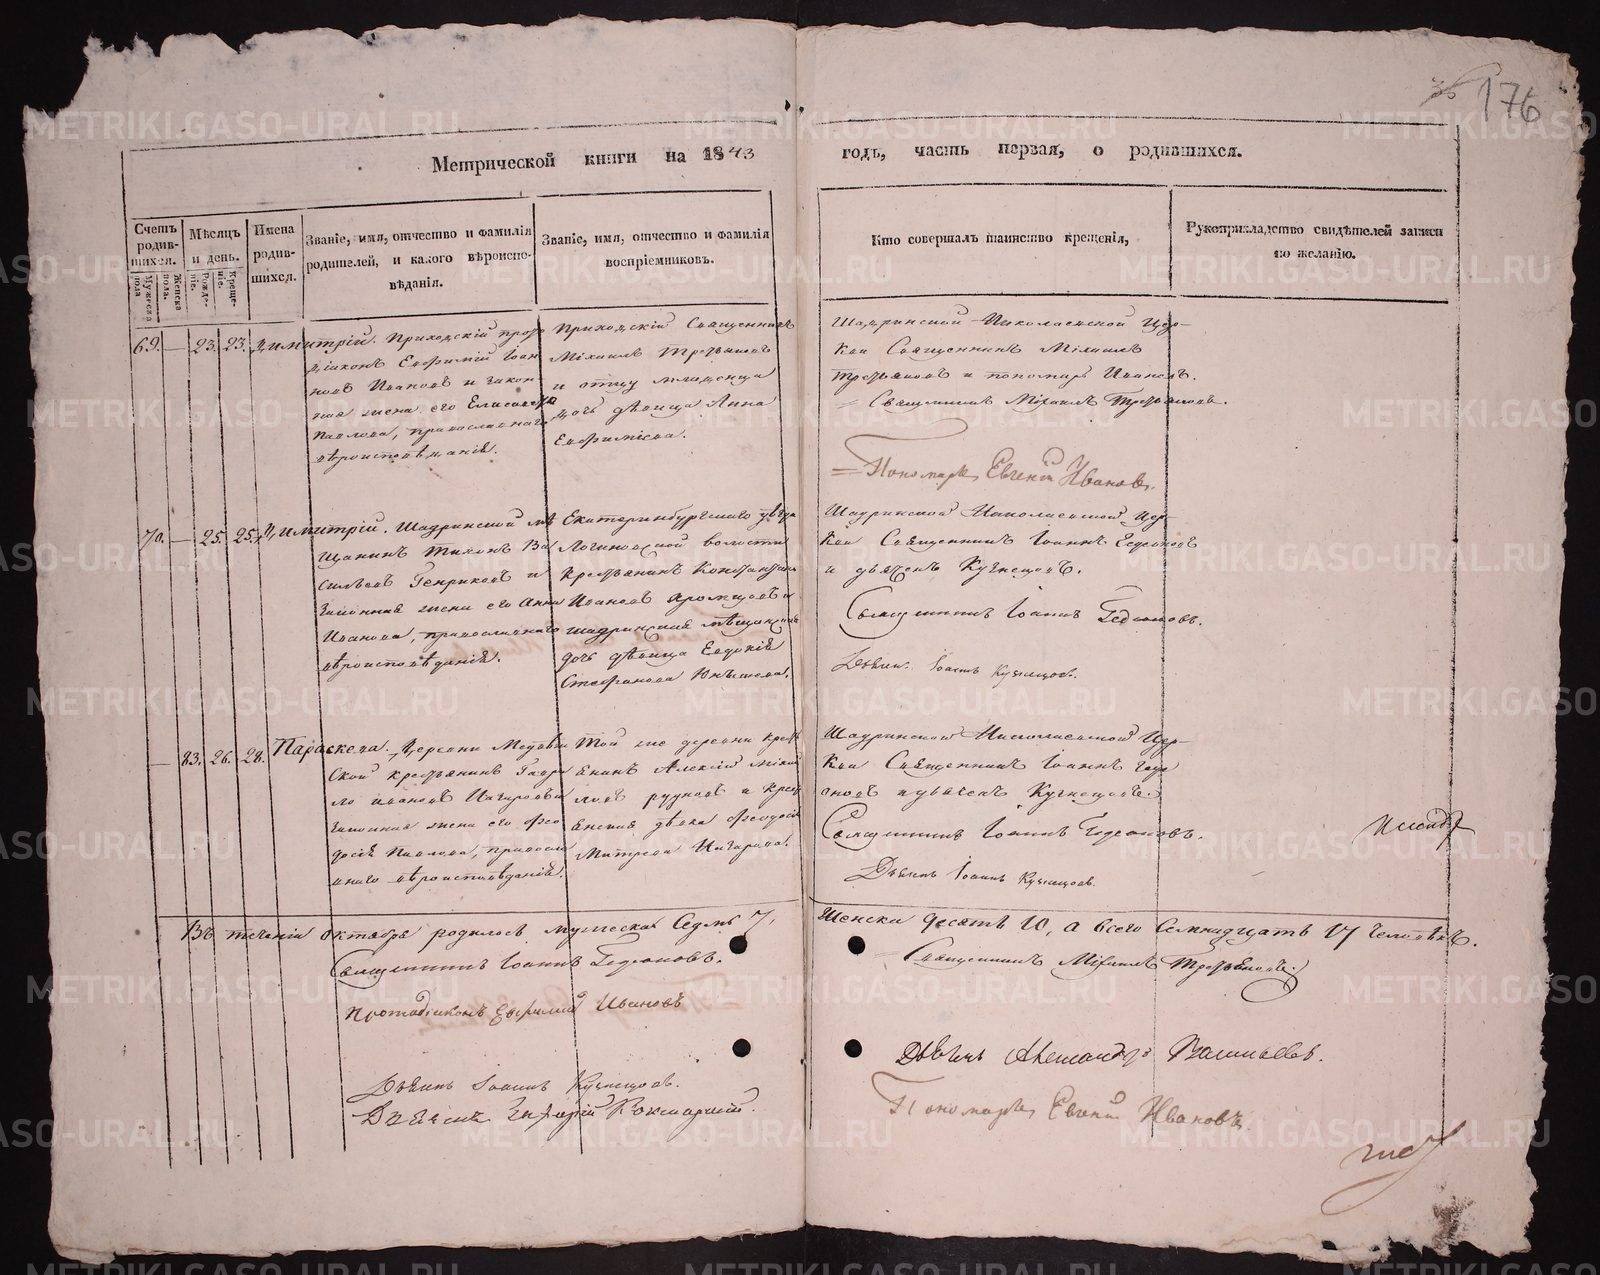 176
Метрической книги на 1843
годъ, часть первая, о родившихся.
Счетъ родившихся.
Мужеска пола
Женска пола.
Мѣсяцъ и день.
Рожденіе.
Крещеніе.
Имена родившихся.
Званіе, имя, отчество и фамилія
родителей, и какого вѣроиспо-
вѣданія.
Званіе, имя, отчество и фамилія
воспріемниковъ.
Кто совершалъ таинство крещенія,
Рукоприкладство свидѣтелей записи
по желанію.
69. — 23. 23. Димитрій.
Приходскій прото
діаконъ Евфимій Іоан
новъ Ивановъ и закон
ная жена его Елисавета
Павлова, православнаго
вѣроисповѣданія.
Приходскій Священникъ
Михаилъ Третьяковъ
и отцу младенца
дочь дѣвица Анна
Евфиміева.
Шадринской Николаевской Цер-
кви Священникъ Михаилъ
Третьяковъ и пономарь Ивановъ.
Священникъ Михаилъ Третьяковъ.
Пономарь Евгеній Ивановъ.
70. — 25. 25. Димитрій.
Шадринской мѣ
щанинъ Тихонъ Ва
сильевъ и
законная жена его Анна
Иванова, православнаго
вѣроисповѣданія.
Екатеринбургскаго уѣзда
волости
крестьянинъ Константинъ
Ивановъ и
шадринская мѣщанская
дочь дѣвица Евдокія
Стефанова
Шадринской Николаевской Цер-
кви Священникъ Іоаннъ Гедеоновъ
и дьячекъ Кузнецовъ.
Священникъ Іоаннъ Гедеоновъ.
Дьячекъ Іоаннъ Кузнецовъ.
— 83. 26. 28. Параскева.
Деревни
ской крестьянинъ Гаври
ло Ивановъ и
законная жена его Фео
досія Павлова, правосла
внаго вѣроисповѣданія.
Той же деревни кресть
янинъ Алексій Михай
ловъ и крест
янская дѣвка Феодосія
Митрева
Шадринской Николаевской Цер-
кви Священникъ Іоаннъ Геде
оновъ и дьячекъ Кузнецовъ.
Священникъ Іоаннъ Гедеоновъ.
Дьячекъ Іоаннъ Кузнецовъ.
Въ теченіи Октября родилось мужеска Седмь 7,
Женска десять 10, а всего Семнадцать 17 человѣкъ.
Священникъ Іоаннъ Гедеоновъ.
Священникъ Михаилъ Третьяковъ.
Протодіаконъ Евфимій Ивановъ
Дьячекъ Александръ Васильевъ.
Дьячекъ Іоаннъ Кузнецовъ.
Пономарь Евгеній Ивановъ.
METRIKI.GASO-URAL.RU